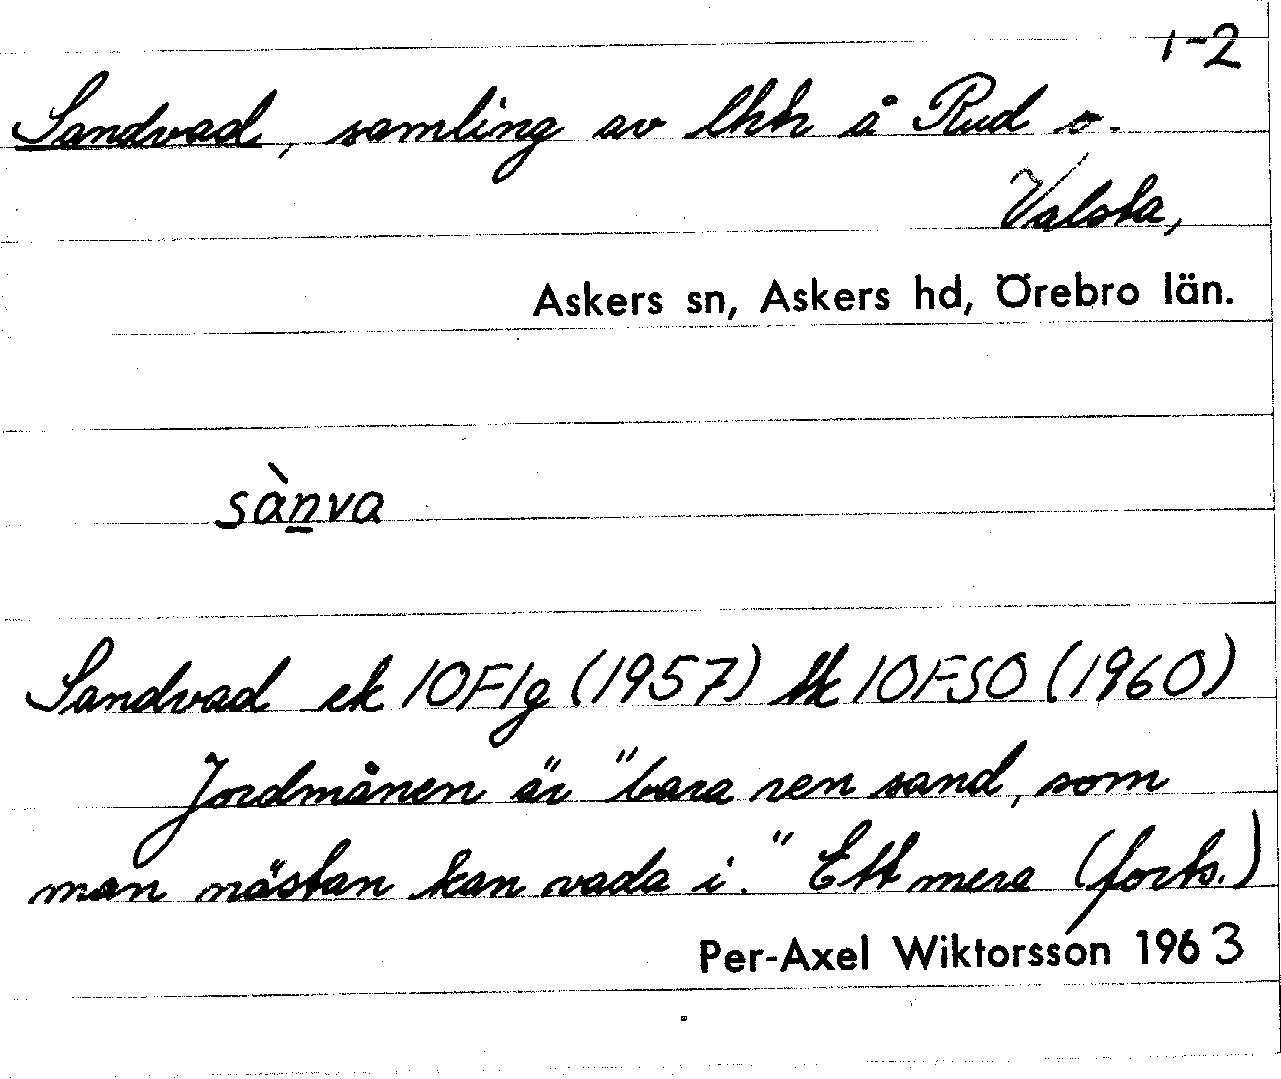 1-2
Sandvad, samling av lhh å Rud o.
Valsta,
Askers sn, Askers hd, Örebro län.
sànva
Sandvad ek 10F1g (1957) tk 10FSO (1960)
Jordmånen är "bara ren sand, som
man nästan kan vada i." Ett mera (forts.)
Per-Axel Wiktorsson 1963